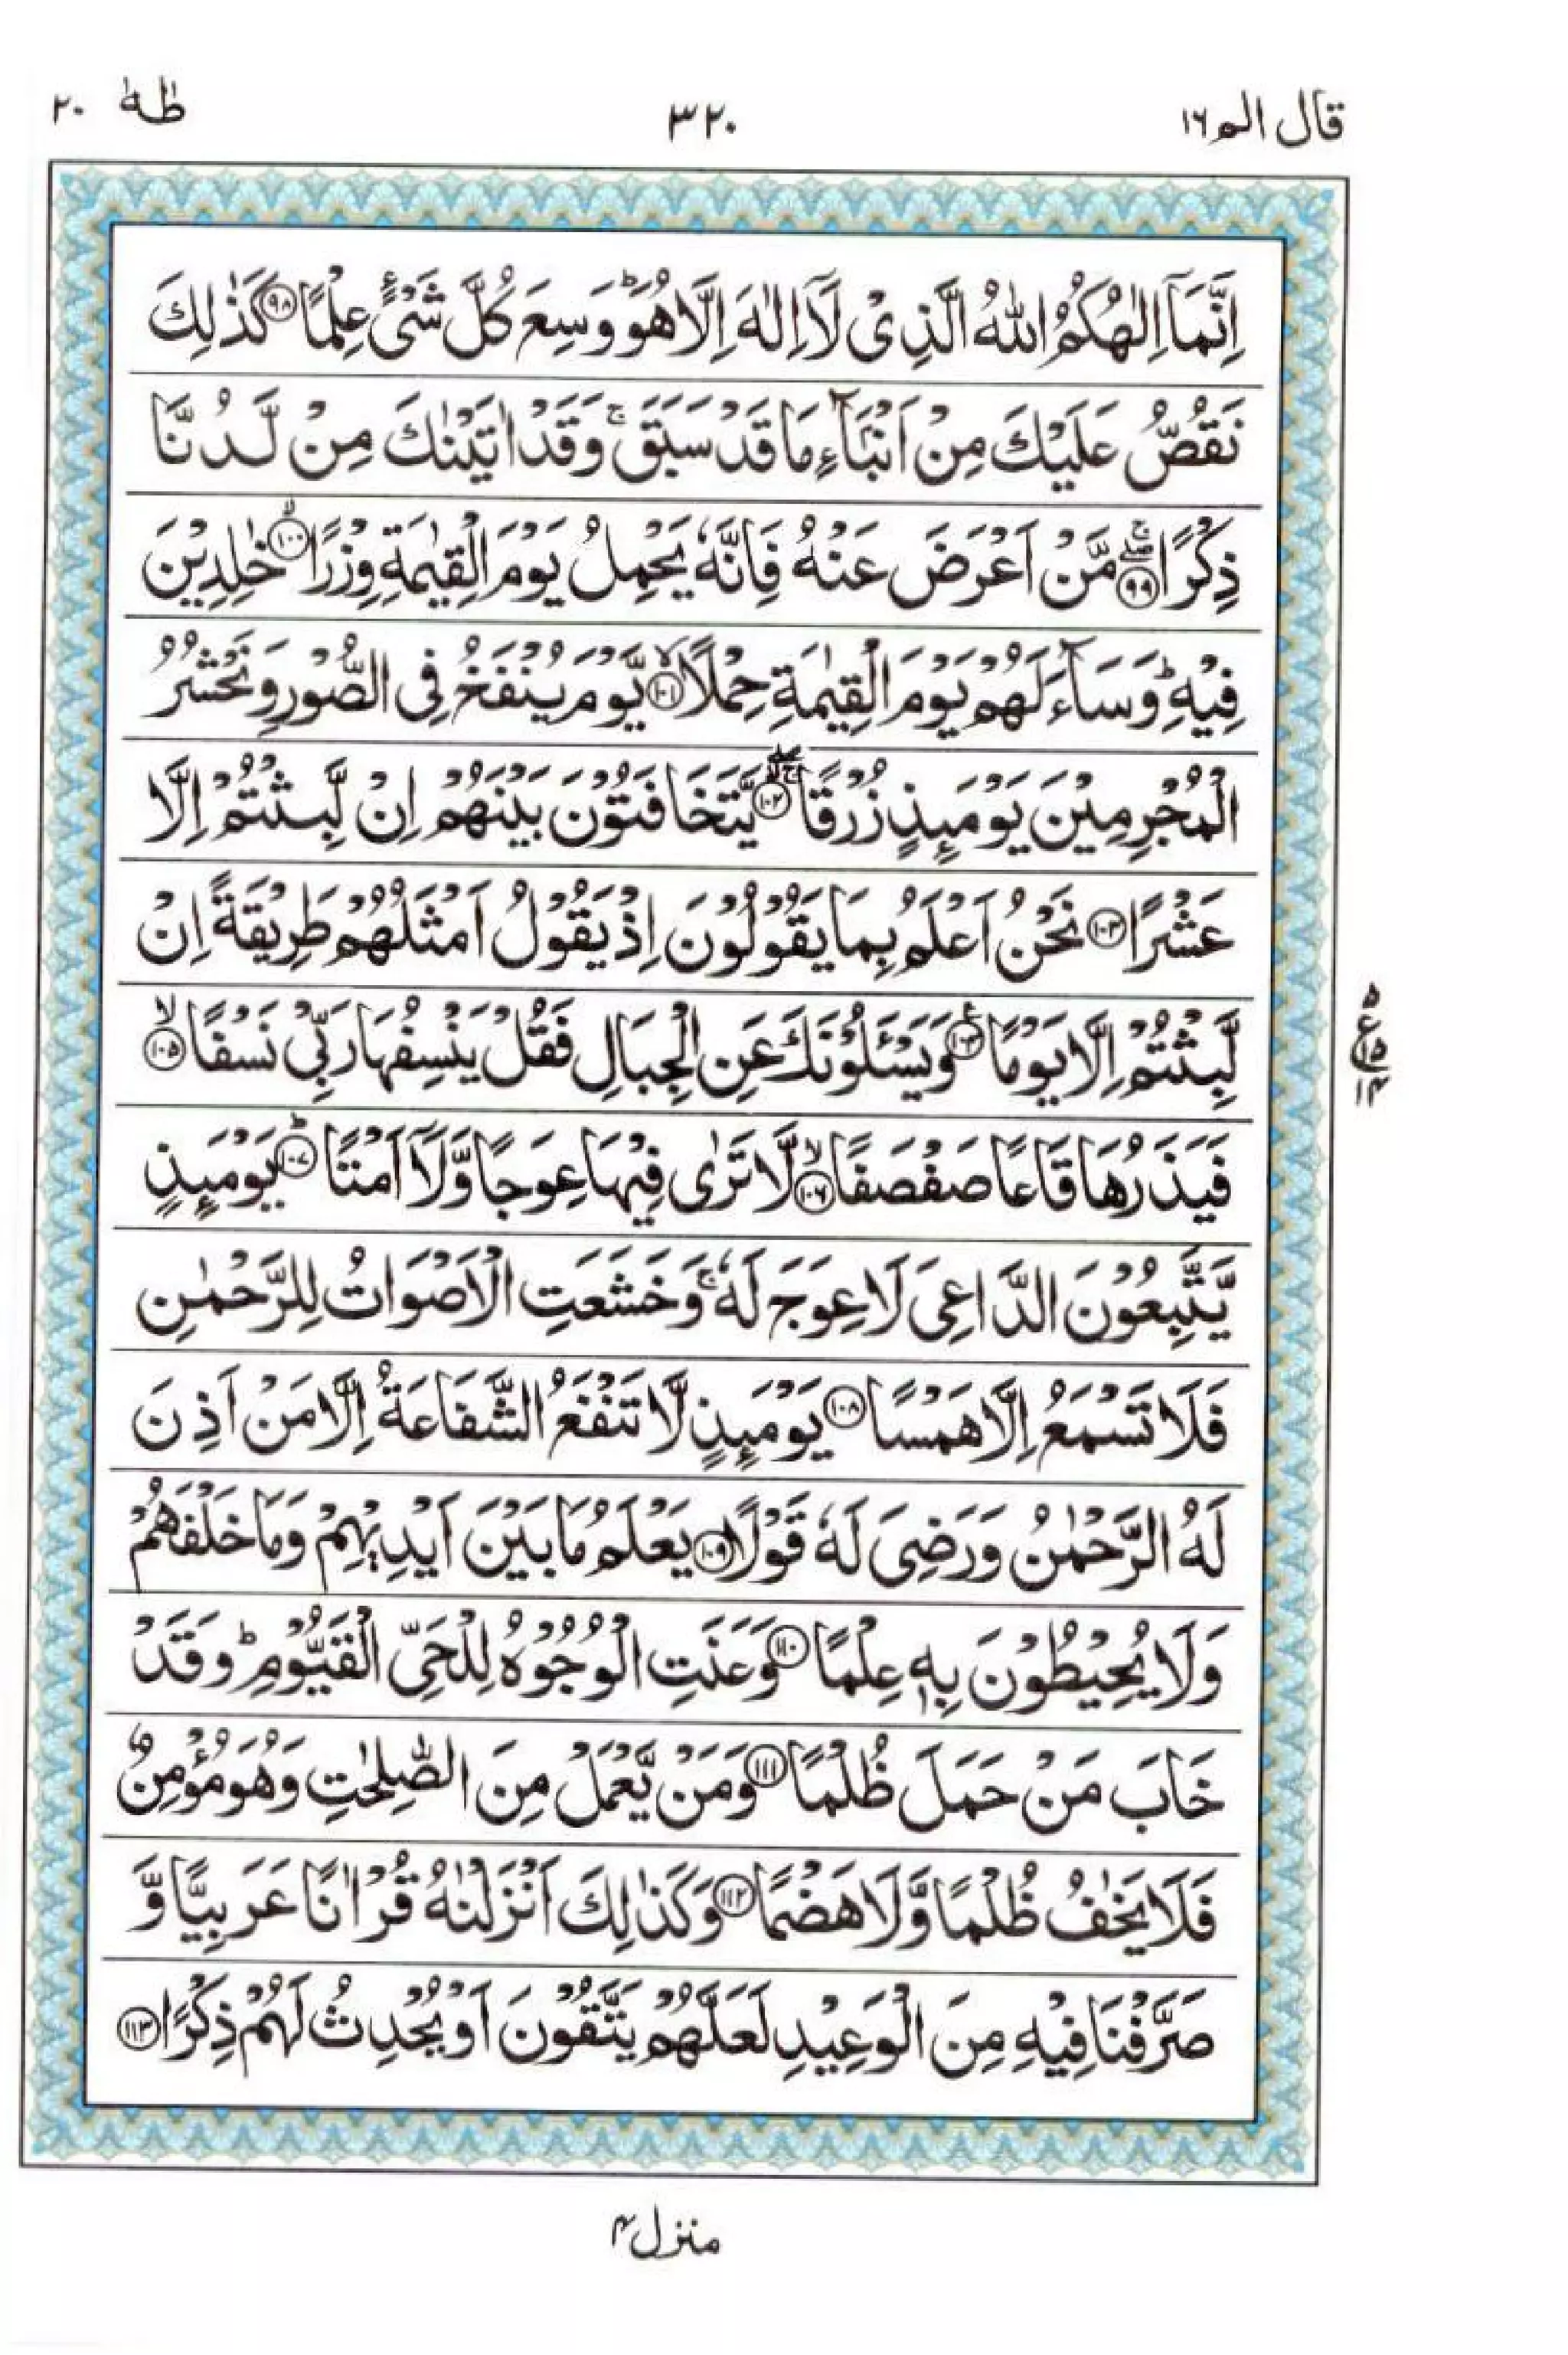 قال الم ١٦
٣٢٠
طٰهٰ ٢٠
اِنَّمَآ اِلٰهُكُمُ اللّٰهُ الَّذِىْ لَآ اِلٰهَ اِلَّا هُوَ ؕ وَسِعَ كُلَّ شَىْءٍ عِلْمًا ﴿٩٨﴾ كَذٰلِكَ
نَقُصُّ عَلَيْكَ مِنْ اَنْۢبَآءِ مَا قَدْ سَبَقَ ۚ وَقَدْ اٰتَيْنٰكَ مِنْ لَّدُنَّا
ذِكْرًا ﴿٩٩﴾ ۖۚ مَّنْ اَعْرَضَ عَنْهُ فَاِنَّهٗ يَحْمِلُ يَوْمَ الْقِيٰمَةِ وِزْرًا ﴿١٠٠﴾ ۙ خٰلِدِيْنَ
فِيْهِ ؕ وَسَآءَ لَهُمْ يَوْمَ الْقِيٰمَةِ حِمْلًا ﴿١٠١﴾ ۙ يَّوْمَ يُنْفَخُ فِى الصُّوْرِ وَنَحْشُرُ
الْمُجْرِمِيْنَ يَوْمَئِذٍ زُرْقًا ﴿١٠٢﴾ ۖۚ يَّتَخَافَتُوْنَ بَيْنَهُمْ اِنْ لَّبِثْتُمْ اِلَّا
عَشْرًا ﴿١٠٣﴾ نَحْنُ اَعْلَمُ بِمَا يَقُوْلُوْنَ اِذْ يَقُوْلُ اَمْثَلُهُمْ طَرِيْقَةً اِنْ
لَّبِثْتُمْ اِلَّا يَوْمًا ﴿١٠٤﴾ وَيَسْـَٔلُوْنَكَ عَنِ الْجِبَالِ فَقُلْ يَنْسِفُهَا رَبِّىْ نَسْفًا ﴿١٠٥﴾ ۙ
٥
ع
١٥
١٤
فَيَذَرُهَا قَاعًا صَفْصَفًا ﴿١٠٦﴾ ۙ لَّا تَرٰى فِيْهَا عِوَجًا وَّلَآ اَمْتًا ﴿١٠٧﴾ ؕ يَوْمَئِذٍ
يَّتَّبِعُوْنَ الدَّاعِىَ لَا عِوَجَ لَهٗ ۚ وَخَشَعَتِ الْاَصْوَاتُ لِلرَّحْمٰنِ
فَلَا تَسْمَعُ اِلَّا هَمْسًا ﴿١٠٨﴾ يَوْمَئِذٍ لَّا تَنْفَعُ الشَّفَاعَةُ اِلَّا مَنْ اَذِنَ
لَهُ الرَّحْمٰنُ وَرَضِىَ لَهٗ قَوْلًا ﴿١٠٩﴾ يَعْلَمُ مَا بَيْنَ اَيْدِيْهِمْ وَمَا خَلْفَهُمْ
وَلَا يُحِيْطُوْنَ بِهٖ عِلْمًا ﴿١١٠﴾ وَعَنَتِ الْوُجُوْهُ لِلْحَىِّ الْقَيُّوْمِ ؕ وَقَدْ
خَابَ مَنْ حَمَلَ ظُلْمًا ﴿١١١﴾ وَمَنْ يَّعْمَلْ مِنَ الصّٰلِحٰتِ وَهُوَ مُؤْمِنٌ
فَلَا يَخٰفُ ظُلْمًا وَّلَا هَضْمًا ﴿١١٢﴾ وَكَذٰلِكَ اَنْزَلْنٰهُ قُرْاٰنًا عَرَبِيًّا وَّ
صَرَّفْنَا فِيْهِ مِنَ الْوَعِيْدِ لَعَلَّهُمْ يَتَّقُوْنَ اَوْ يُحْدِثُ لَهُمْ ذِكْرًا ﴿١١٣﴾
منزل ٤